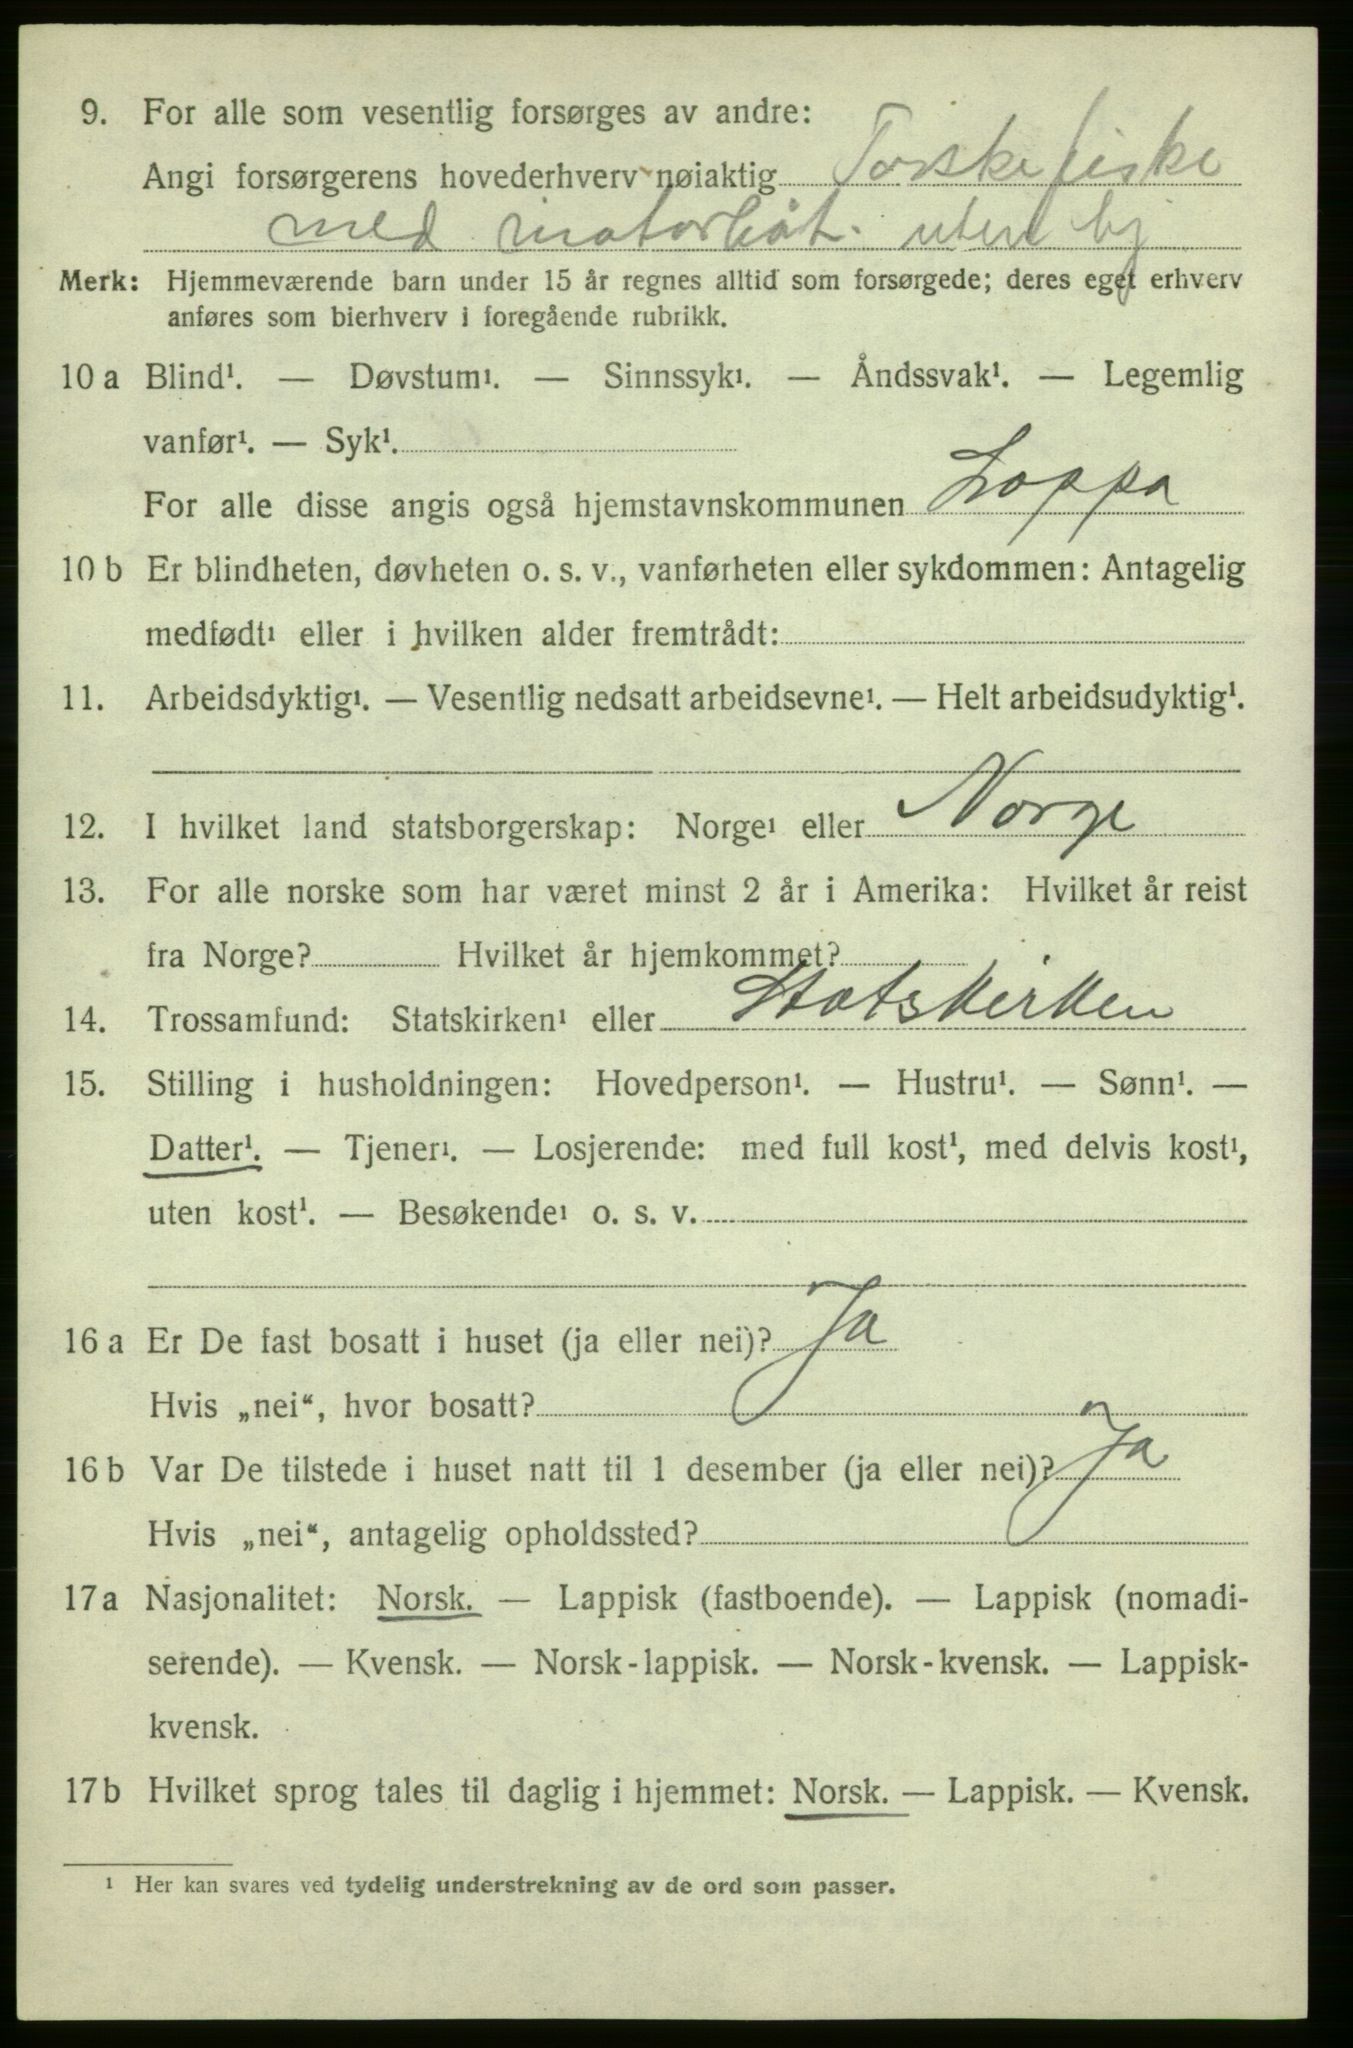 9. For alle som vesentlig forsørges av andre:
Angi forsørgerens hovederhverv nøiaktig Torskefiske
med motorbåt. uten bj
Merk: Hjemmeværende barn under 15 år regnes alltid som forsørgede; deres eget erhverv
anføres som bierhverv i foregående rubrikk.
10 a Blind¹. — Døvstum¹. — Sinnssyk¹. — Åndssvak¹. — Legemlig
vanfør¹. — Syk¹.
For alle disse angis også hjemstavnskommunen Loppa
10 b Er blindheten, døvheten o. s. v., vanførheten eller sykdommen: Antagelig
medfødt¹ eller i hvilken alder fremtrådt:
11. Arbeidsdyktig¹. — Vesentlig nedsatt arbeidsevne¹. — Helt arbeidsudyktig¹.
12. I hvilket land statsborgerskap: Norge¹ eller Norge
13. For alle norske som har været minst 2 år i Amerika: Hvilket år reist
fra Norge? Hvilket år hjemkommet?
14. Trossamfund: Statskirken¹ eller Statskirken
15. Stilling i husholdningen: Hovedperson¹. — Hustru¹. — Sønn¹. —
Datter¹. — Tjener¹. — Losjerende: med full kost¹, med delvis kost¹,
uten kost¹. — Besøkende¹ o. s. v.
16 a Er De fast bosatt i huset (ja eller nei)? Ja
Hvis „nei“, hvor bosatt?
16 b Var De tilstede i huset natt til 1 desember (ja eller nei)? Ja
Hvis „nei“, antagelig opholdssted?
17 a Nasjonalitet: Norsk. — Lappisk (fastboende). — Lappisk (nomadi-
serende). — Kvensk. — Norsk-lappisk. — Norsk-kvensk. — Lappisk-
kvensk.
17 b Hvilket sprog tales til daglig i hjemmet: Norsk. — Lappisk. — Kvensk.
¹ Her kan svares ved tydelig understrekning av de ord som passer.